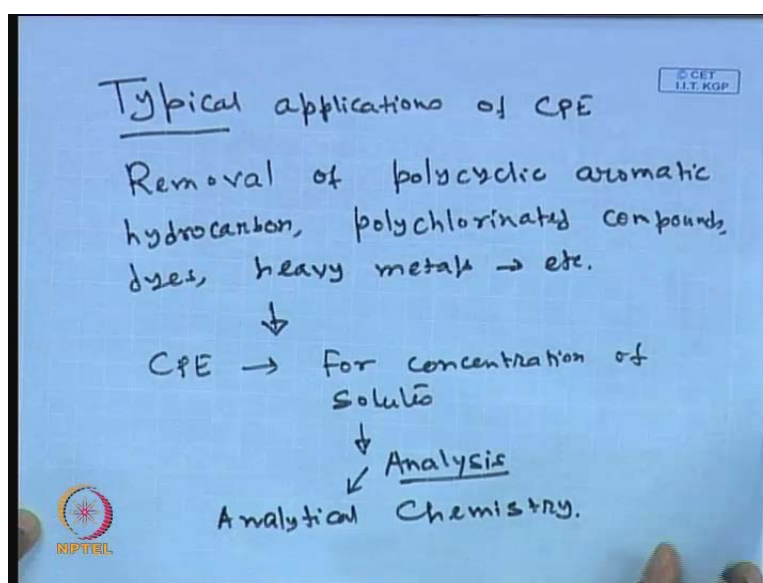 © CET
I.I.T. KGP
Typical applications of CPE
Removal of polycyclic aromatic
hydrocarbon, polychlorinated compounds,
dyes, heavy metals → etc.
↓
CPE → For concentration of
solutes
↓
↙ Analysis
Analytical Chemistry.
NPTEL